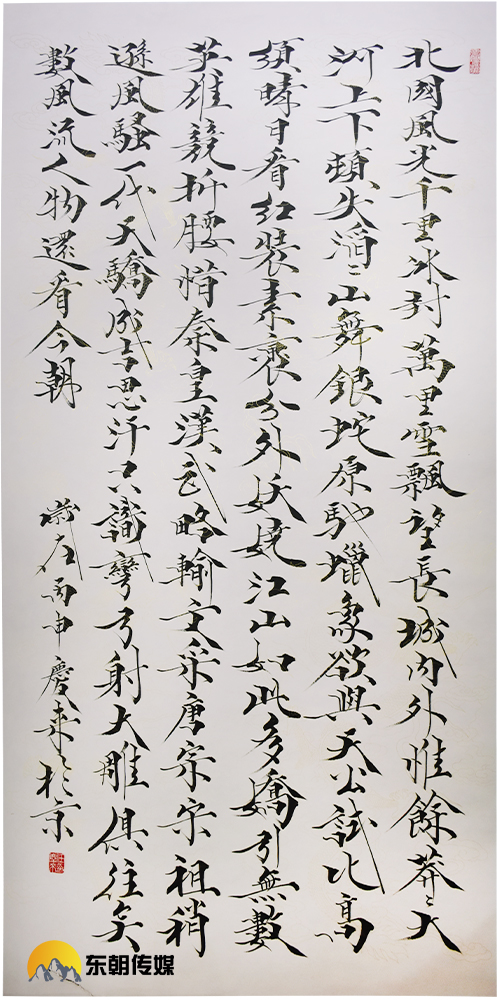 北國風光千里冰封萬里雪飄望長城内外惟餘莽〻大
河上下頓失滔〻山舞銀蛇原馳蠟象欲與天公試比高
須晴日看紅裝素裹分外妖嬈江山如此多嬌引無數
英雄競折腰惜秦皇漢武略輸文采唐宗宋祖稍
遜風騷一代天驕成吉思汗只識彎弓射大雕俱往矣
數風流人物還看今朝
歲在丙申慶来於京
东朝传媒